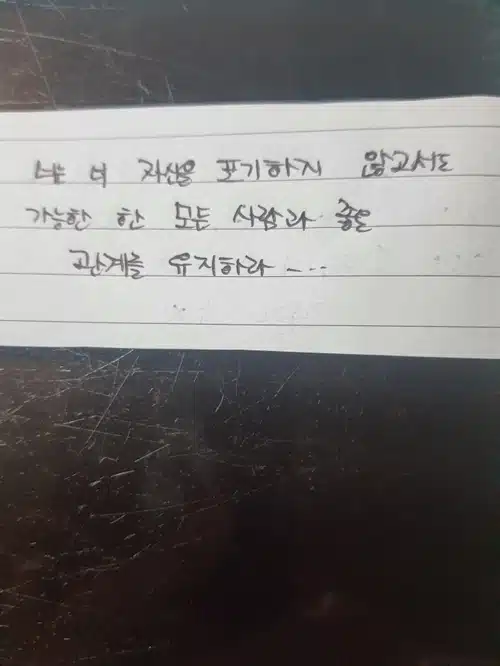 너 자신을 포기하지 않고서도
가능한 한 모든 사람과 좋은
관계를 유지하라 ....